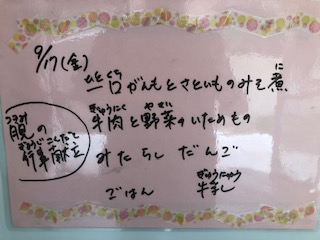 9/17(金)
ひとくち に
一口がんもとさといものみそ煮
ぎゅうにく やさい
牛肉と野菜のいためもの
つきみ
月見の
ぎょうじこんだて
行事献立
みたらし だんご
ぎゅうにゅう
ごはん 牛乳